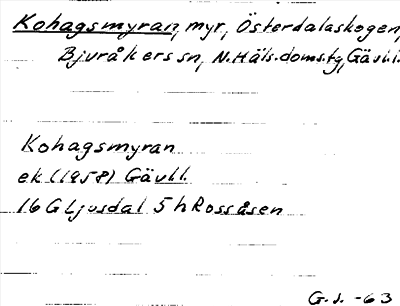 Kohagsmyran, myr, Österdalaskogen,
Bjuråkers sn, N. Häls. doms.tg, Gävl.l.
Kohagsmyran
ek (1958) Gävl.l.
16 G Ljusdal 5 h Rossåsen
G.J. -63